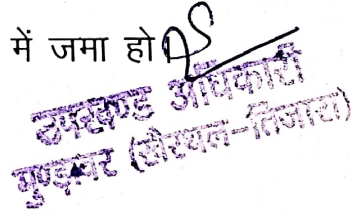 में जमा हो
उपखण्ड अधिकारी
मुण्डावर (खैरथल–तिजारा)